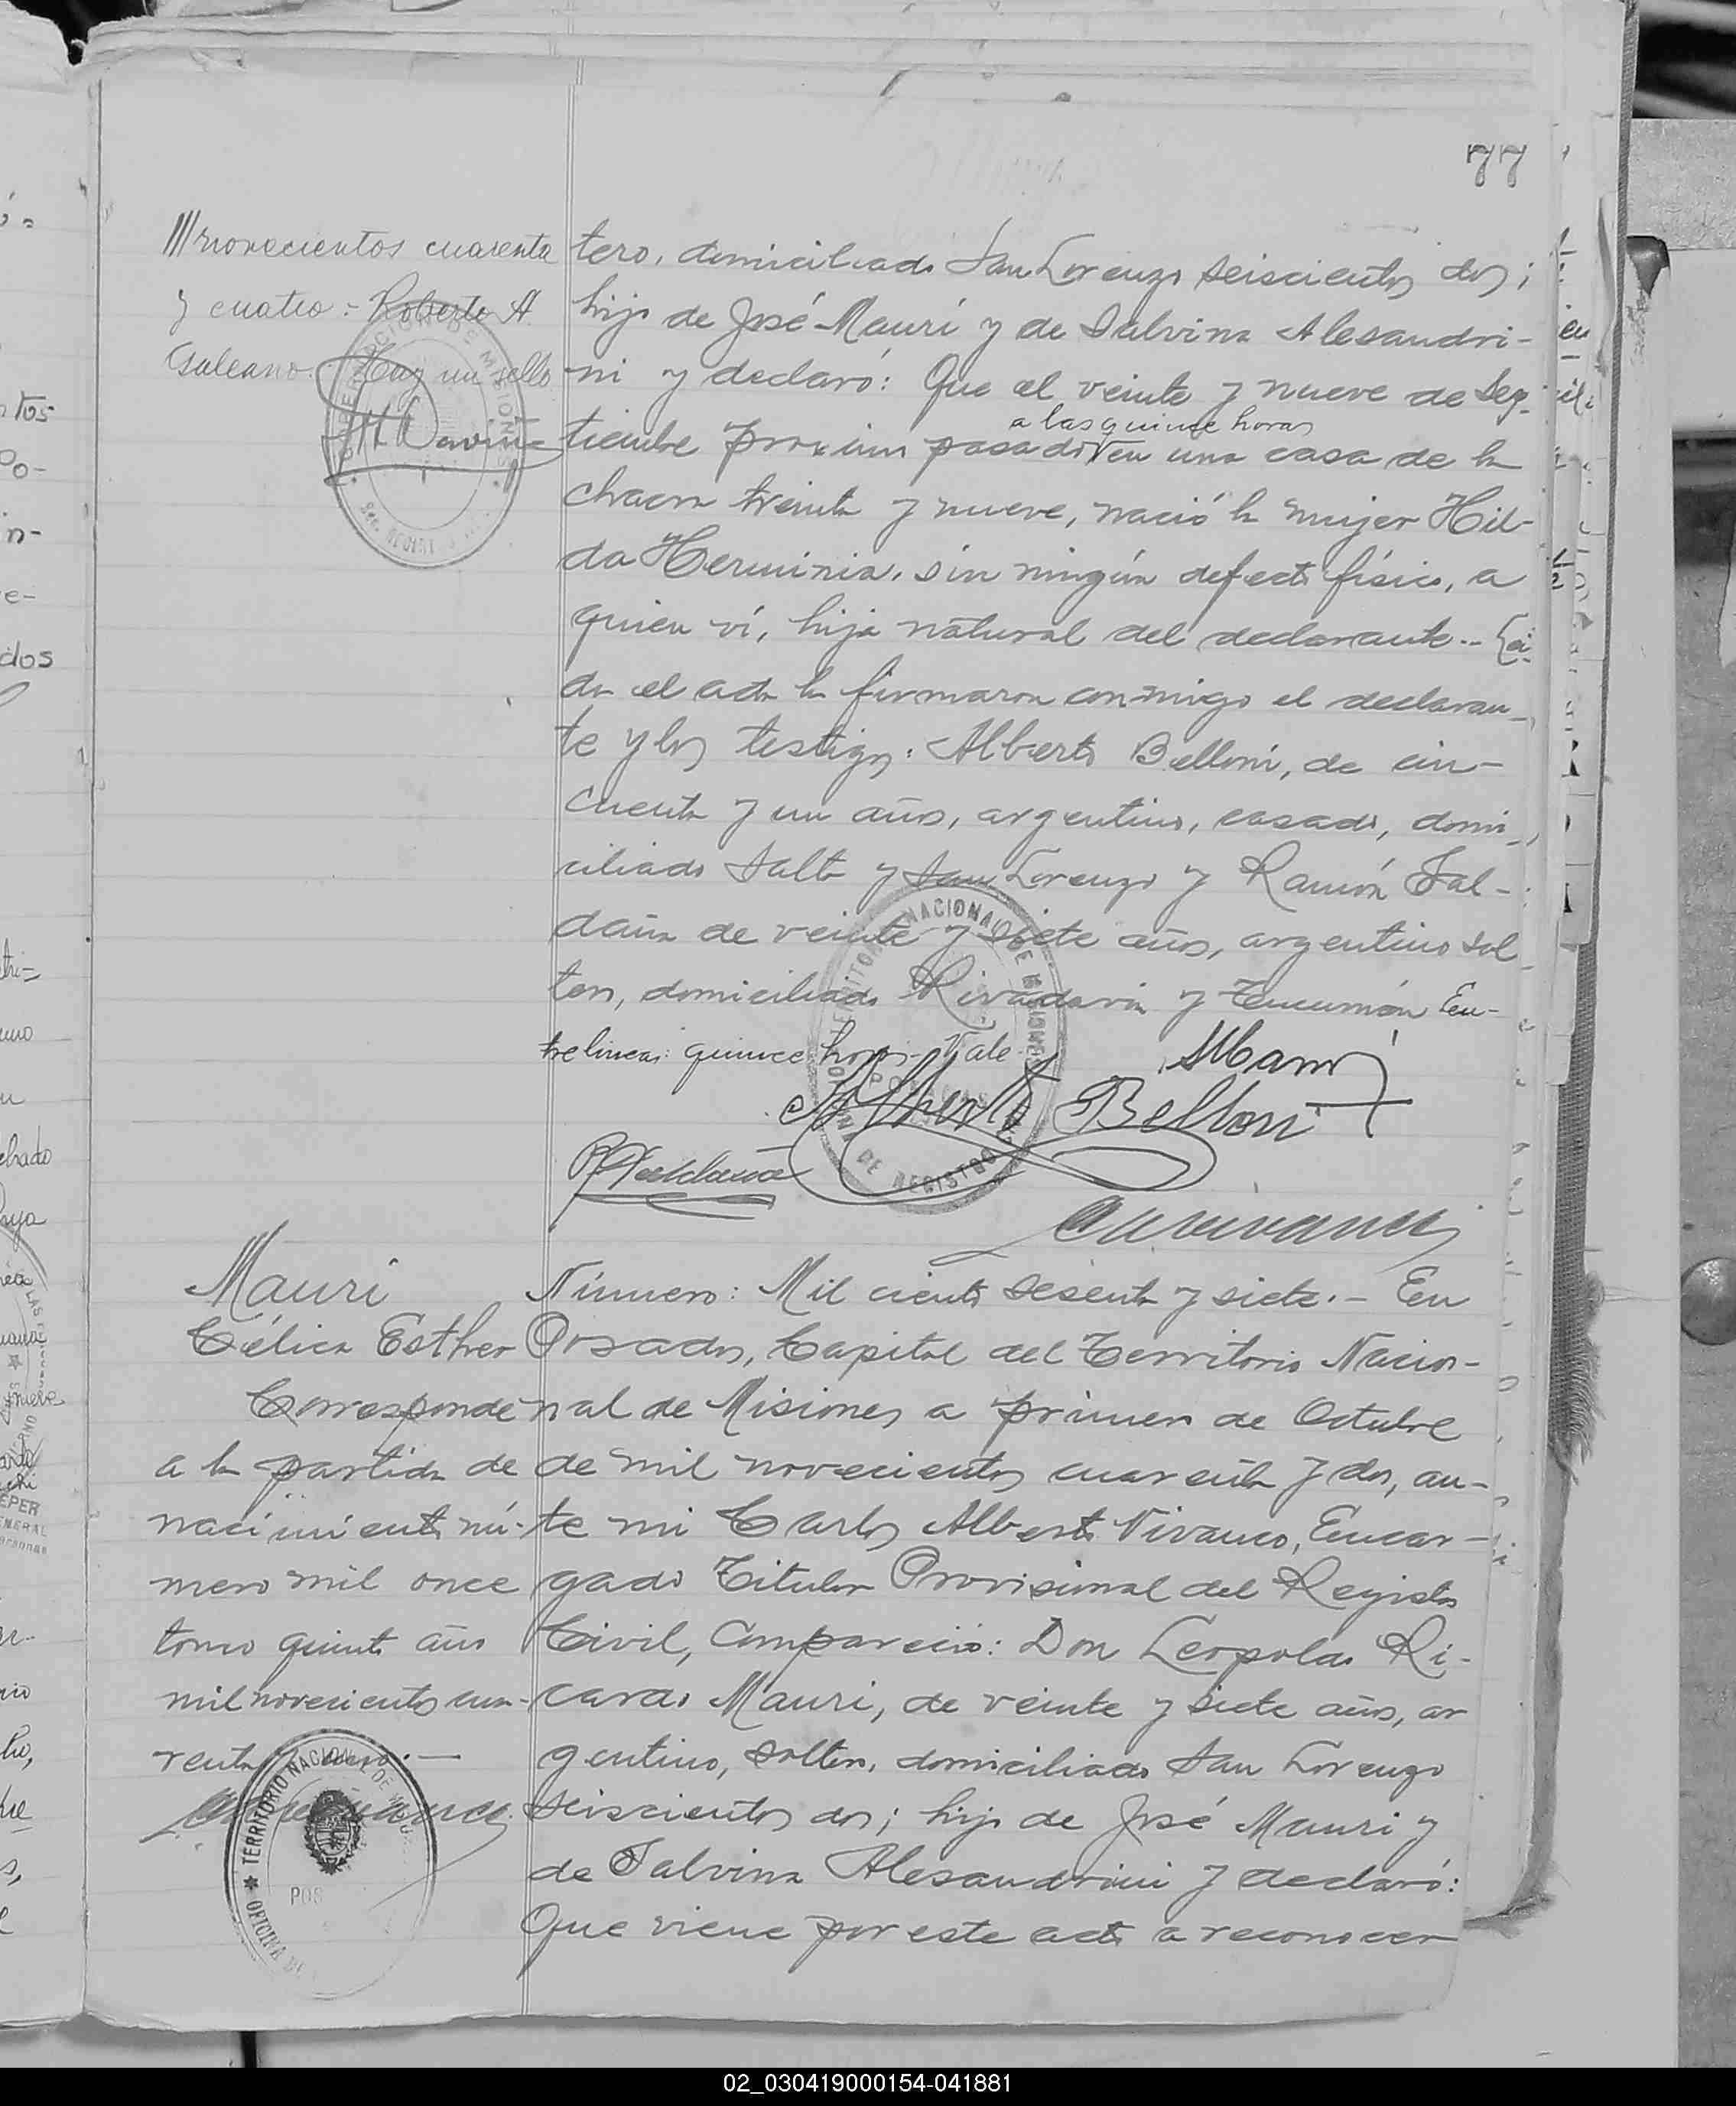 77
novecientos cuarenta
y cuatro = Roberto A.
Galeano. Hay un sello
tero, domiciliado San Lorenzo seiscientos dos;
hijo de José Mauri y de Salvina Alesandri-
ni y declaró: Que el veinte y nueve de Sep-
a las quince horas
tiembre proximo pasado en una casa de la
chacra treinta y nueve, nació la mujer Hil-
da Herminia, sin ningún defecto físico, a
quien ví, hija natural del declarante.. Leí-
da el acta la firmaron conmigo el declaran-
te y los testigos: Alberto Belloni, de cin-
cuenta y un años, argentino, casado, domi-
ciliado Salta y San Lorenzo y Ramón Sal-
daña de veinte y siete años, argentino sol-
tero, domiciliado Rivadavia y Tucumán En-
trelineas: quince horas - Vale
Alberto Belloni
R Saldaña
Mauri
Célica Esther
Corresponde
a la partida de
nacimiento nú-
mero mil once
tomo quinto año
mil novecientos cua-
renta
Número: Mil ciento sesenta y siete.- En
Posadas, Capital del Territorio Nacio-
nal de Misiones a primero de Octubre
de mil novecientos cuarenta y dos, an-
te mi Carlos Alberto Vivanco, Encar-
gado Titular Provisional del Registro
Civil, Compareció: Don Leopoldo Ri-
cardo Mauri, de veinte y siete años, ar
gentino, soltero, domiciliado San Lorenzo
seiscientos dos; hijo de José Mauri y
de Salvina Alesandrini y declaró:
Que viene por este acto a reconocer
TERRITORIO NACIONAL DE
OFICINA
POS
02_030419000154-041881